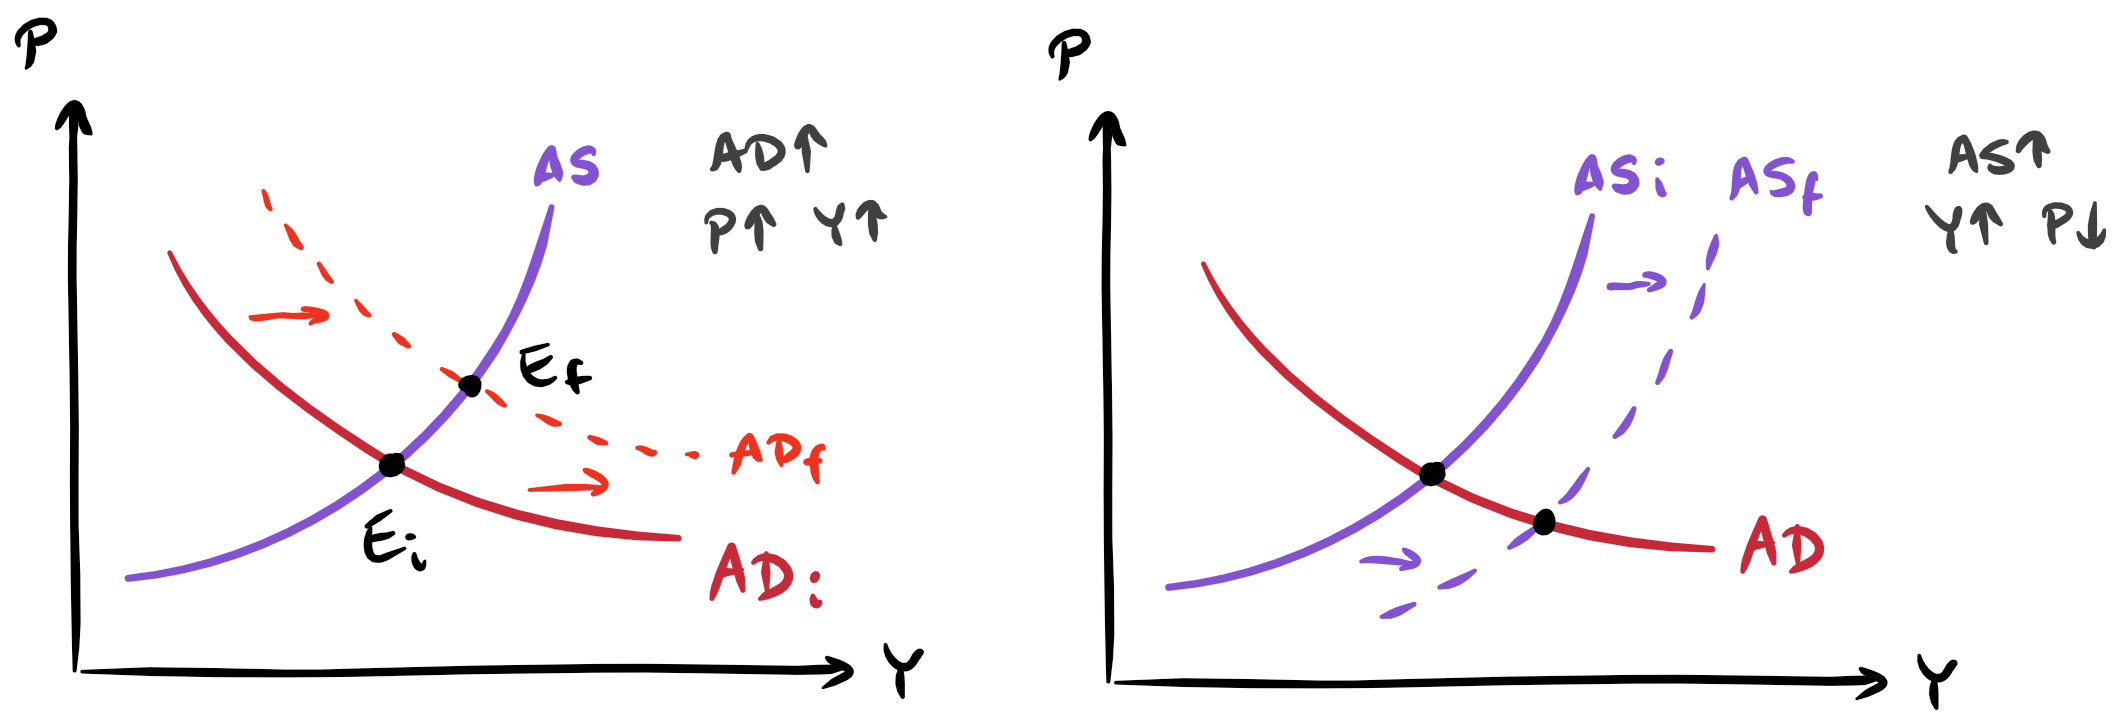 P
AS
AD↑
P↑ Y↑
E_f
AD_f
E_i
AD_i
Y
P
AS_i AS_f
AS↑
Y↑ P↓
AD
Y